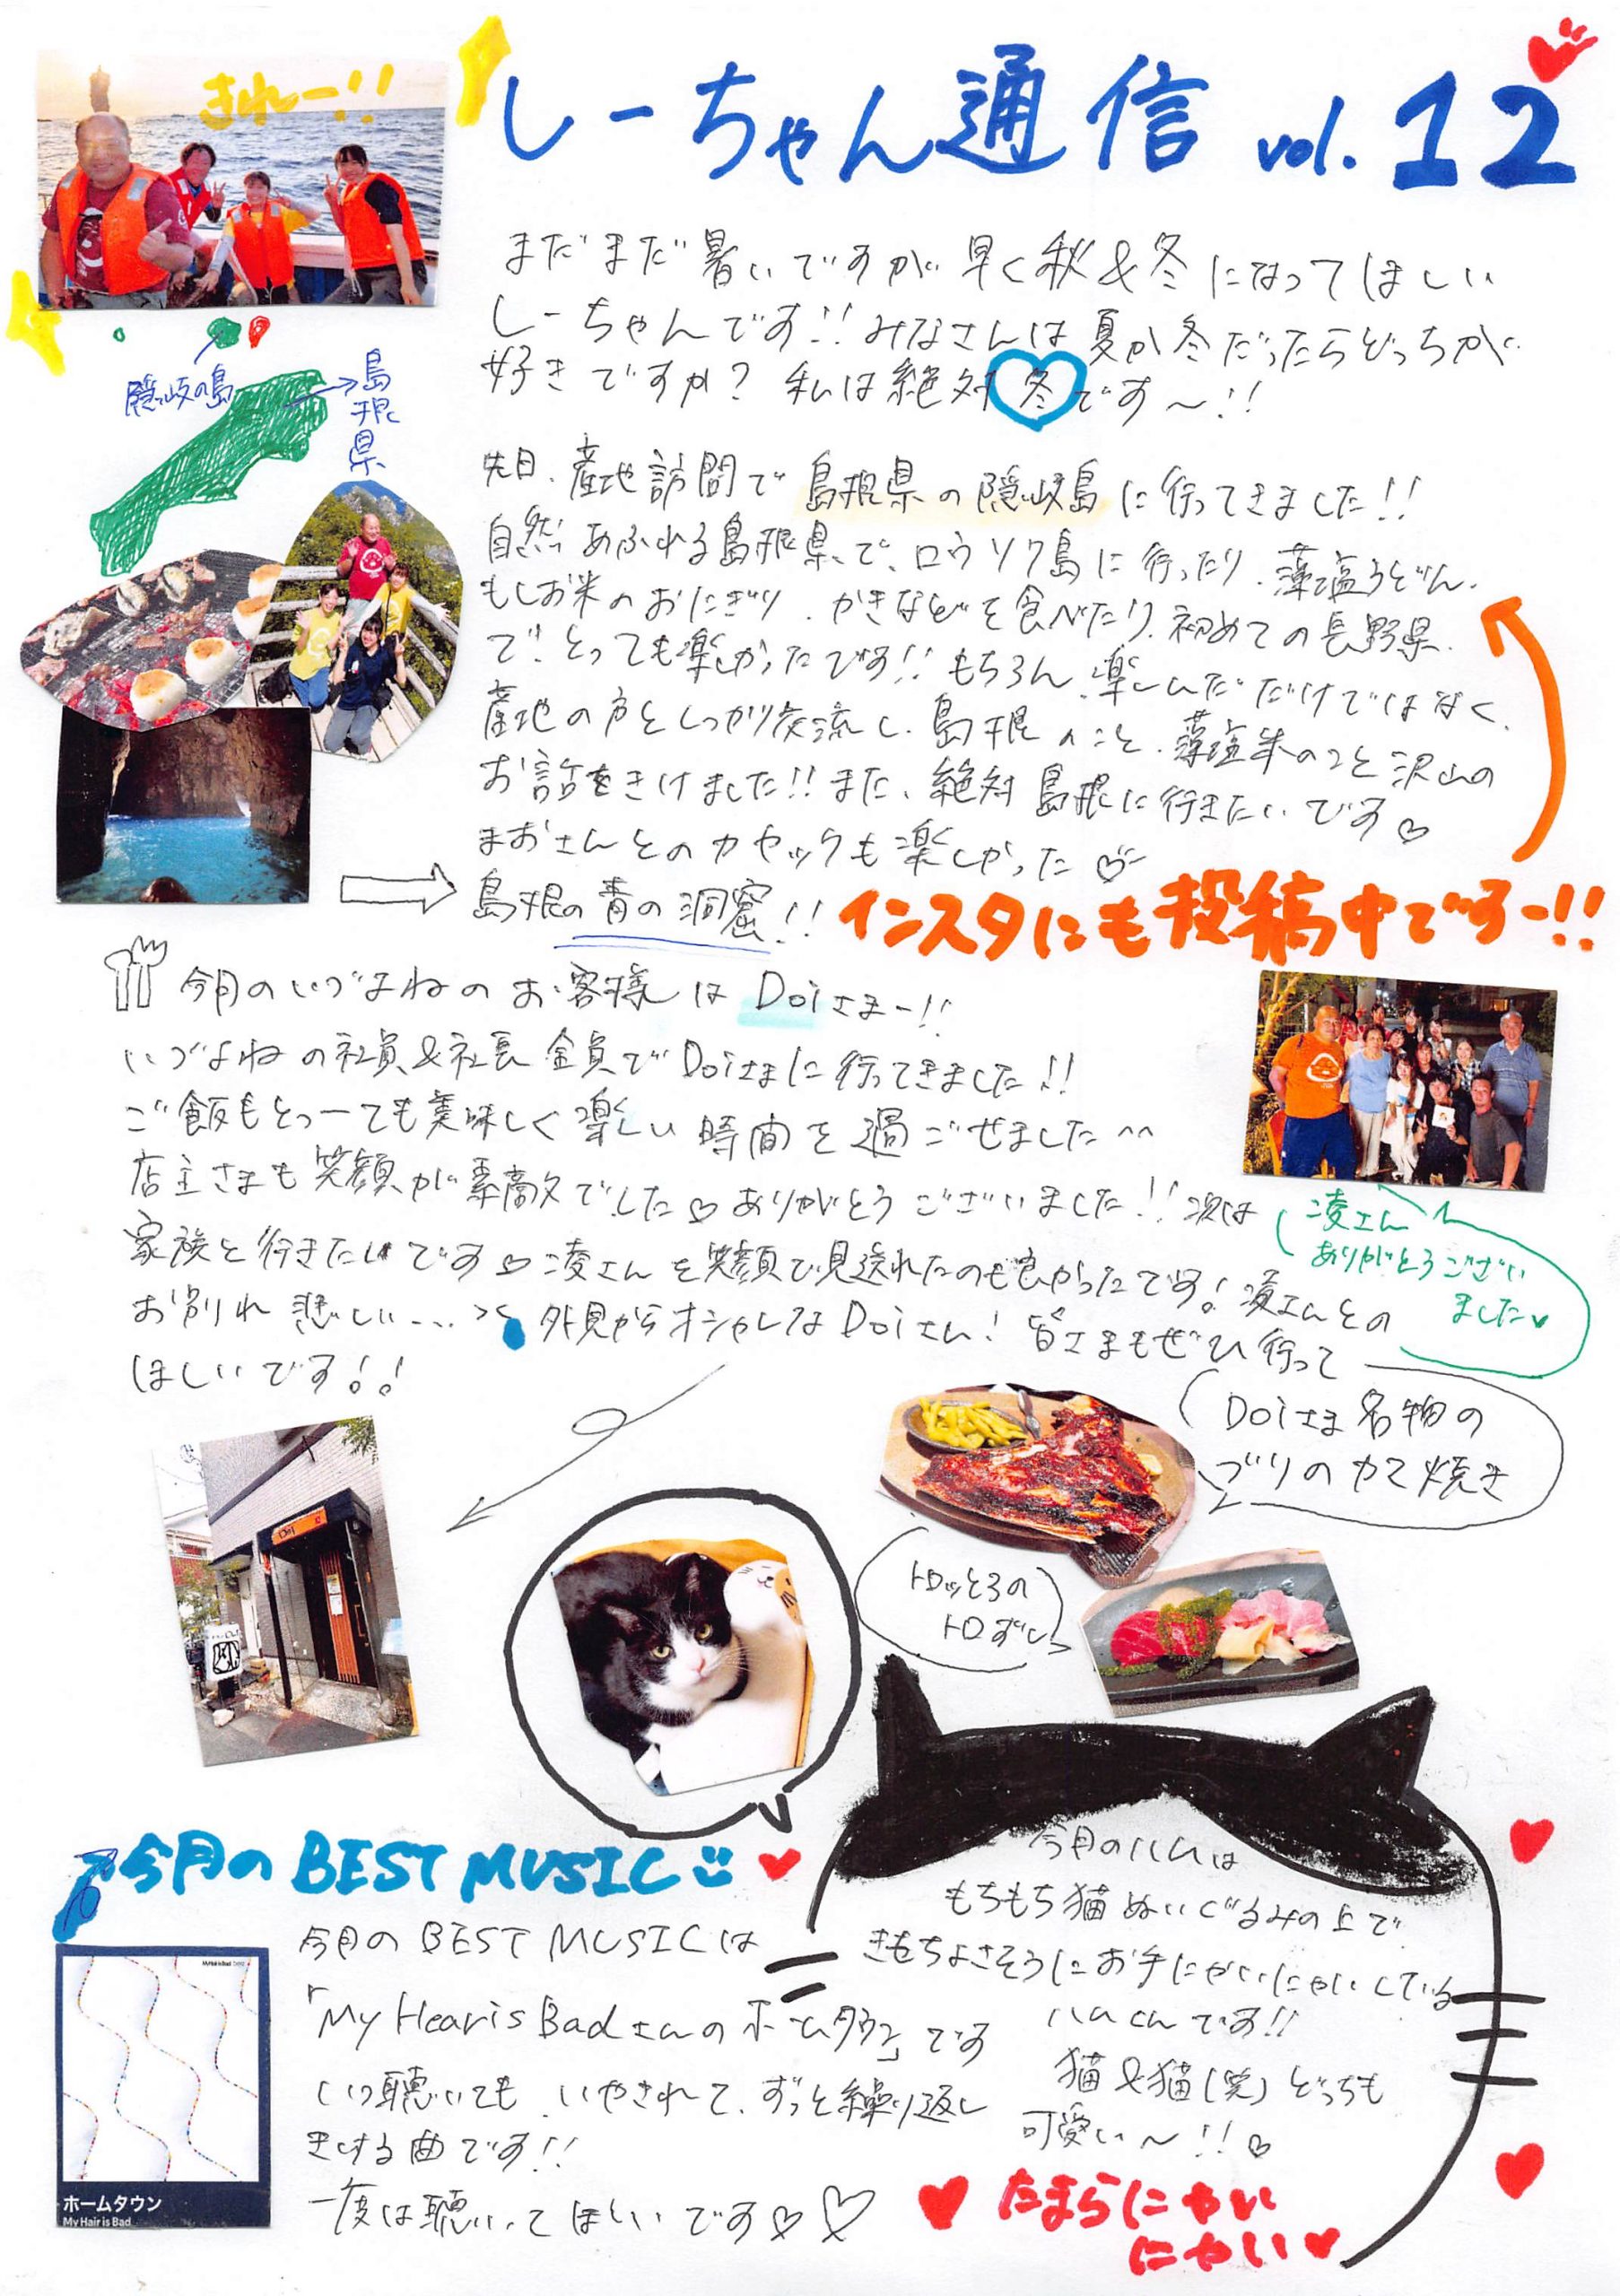 きれー!!
しーちゃん通信 vol.12
まだまだ暑いですが早く秋&冬になってほしい
しーちゃんです!!みなさんは夏か冬だったらどっちが
好きですか? 私は絶対冬です〜!!
隠岐の島
島根県
先日、産地訪問で島根県の隠岐島に行ってきました!!
自然あふれる島根県で、ロウソク島に行ったり、藻塩うどん、
もしお米のおにぎり、かきなどを食べたり、初めての長野県、
で!とっても楽しかったです!!もちろん、楽しんだだけではなく、
産地の方としっかり交流し、島根のこと、藻塩米のこと沢山の
お話をきけました!!また、絶対島根に行きたいです♡
まおさんとのカヤックも楽しかった♡
島根の青の洞窟!!
インスタにも投稿中ですー!!
今月のいづよねのお客様はDoiさまー!!
いづよねの社員&社長全員でDoiさまに行ってきました!!
ご飯もとっーても美味しく楽しい時間を過ごせました^^
店主さまも笑顔が素敵でした♡ありがとうございました!!次は
家族と行きたいです♡凌さんを笑顔で見送れたのも良かったです!凌さんとの
お別れ悲しい... 外見からオシャレなDoiさん!皆さまもぜひ行って
ほしいです!!
凌さん
ありがとうござい
ました♥
Doiさま名物の
ブリのカマ焼き
トロッとろの
トロずし
Doi
今月のBEST MUSIC
今月のBEST MUSICは
「My Hearis Badさんのホームタウン」です
いつ聴いても、いやされて、ずっと繰り返し
きける曲です!!
一度は聴いてほしいです♡♡
My Hair is Bad
ホームタウン
My Hair is Bad
今月のハムは
もちもち猫ぬいぐるみの上で
きもちよさそうにお手にゃいにゃいしている
ハムくんです!!
猫&猫(笑)どっちも
可愛い〜!!♡
♥たまらにゃい
にゃい♥